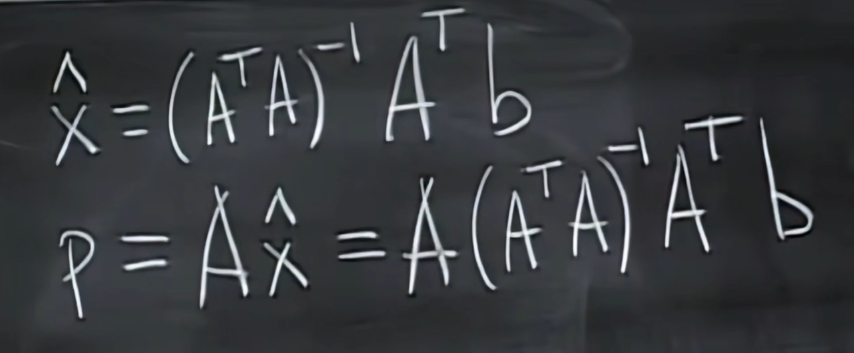 x̂ = (AᵀA)⁻¹ Aᵀ b
p = A x̂ = A (AᵀA)⁻¹ Aᵀ b